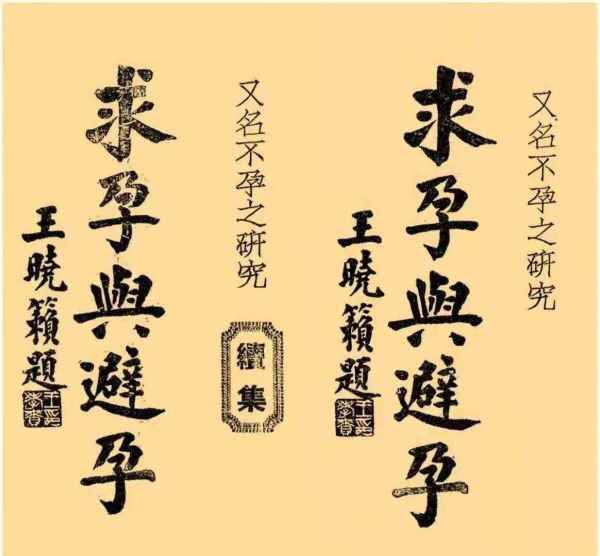 又名不孕之研究
求孕與避孕
王曉籟題
又名不孕之研究
續集
求孕與避孕
王曉籟題